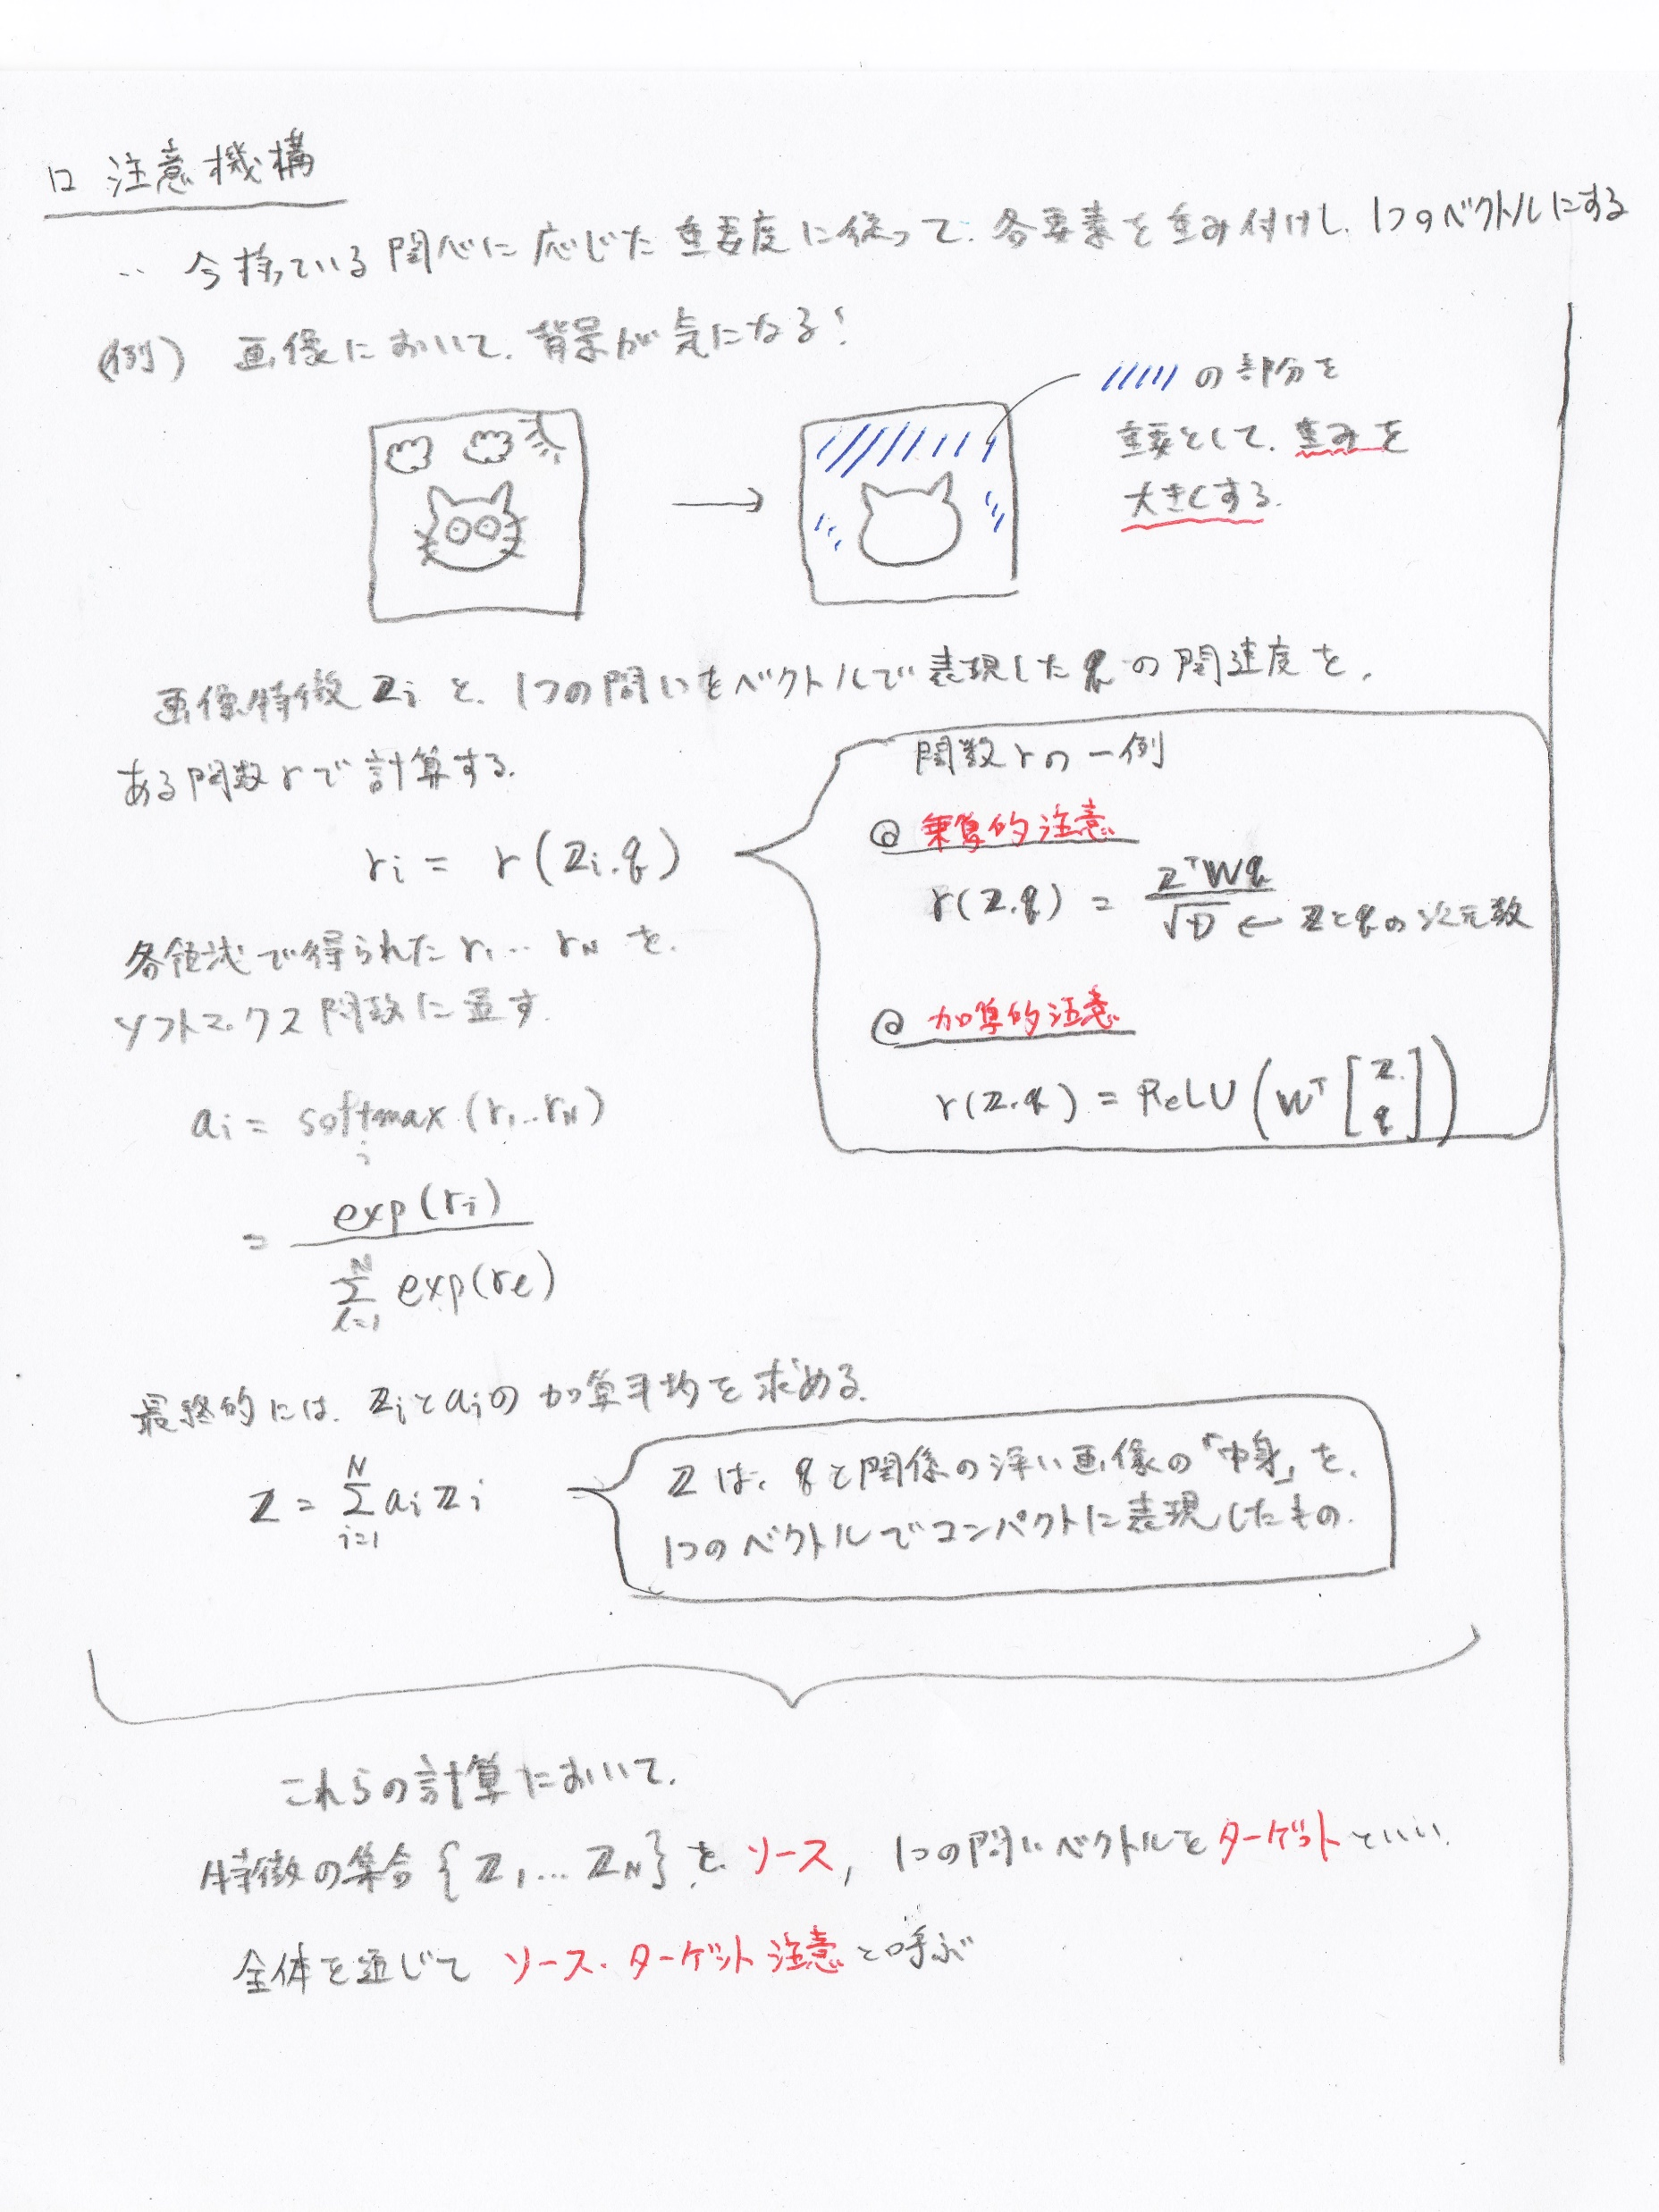 □ 注意機構
‥ 今持っている関心に応じた重要度に従って、各要素を重み付けし、1つのベクトルにする
(例) 画像において、背景が気になる!
の部分を
重要として、重みを
大きくする。
画像特徴 zi と、1つの問いをベクトルで表現した q の関連度を、
ある関数 r で計算する。
ri = r(zi, q)
関数rの一例
@ 乗算的注意
r(z, q) = zᵀWq / √D ← zとqの次元数
@ 加算的注意
r(z, q) = ReLU (Wᵀ [z q])
各領域で得られた r1 … rN を、
ソフトマックス関数に直す。
ai = softmax i (r1‥rN)
= exp(ri) / Σ l=1 N exp(rl)
最終的には、zi と ai の 加算平均を求める。
z = Σ i=1 N ai zi
z は、q と関係の深い画像の「中身」を、
1つのベクトルでコンパクトに表現したもの。
これらの計算において、
特徴の集合 {z1, … zN} を ソース, 1つの問いベクトルを ターゲット といい、
全体を通じて ソース・ターゲット注意 と呼ぶ